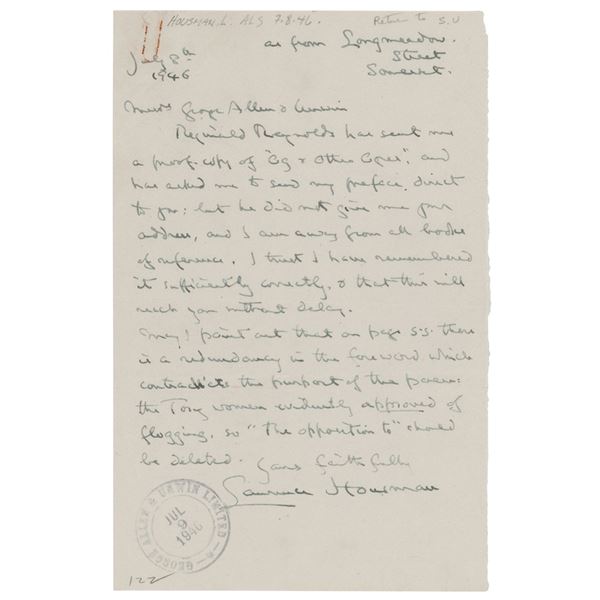 HOUSMAN. L. ALS 7.8.46.
Return to S.U
as from Longmeadow.
Street
Somerset.
July 8th
1946
Messrs George Allen & Unwin
Reginald Reynolds has sent me
a proof-copy of "Og & Other Ogres", and
has asked me to send my preface, direct
to you: but he did not give me your
address, and I am away from all books
of reference. I trust I have remembered
it sufficiently correctly, & that this will
reach you without delay.
May I point out that on page 55 there
is a redundancy in the foreword which
contradicts the purport of the poem:
the Tory women evidently approved of
flogging, so "the opposition to" should
be deleted.
Yours faithfully
Laurence Housman
GEORGE ALLEN & UNWIN LIMITED
JUL
9
1946
122